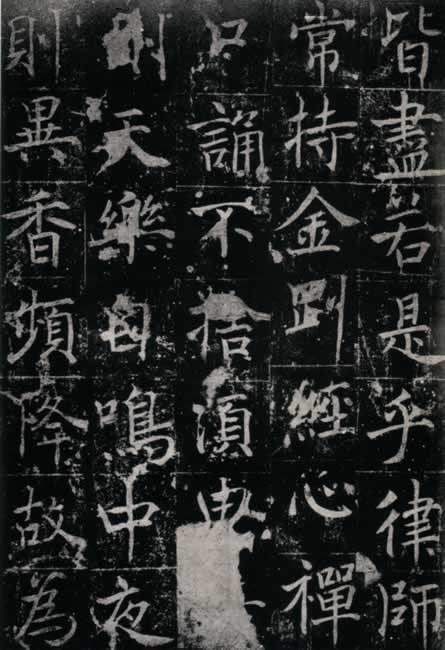 皆盡若是乎律師
常持金剛經心禪
口誦不捨須臾
則天樂自鳴中夜
則異香頻降故為